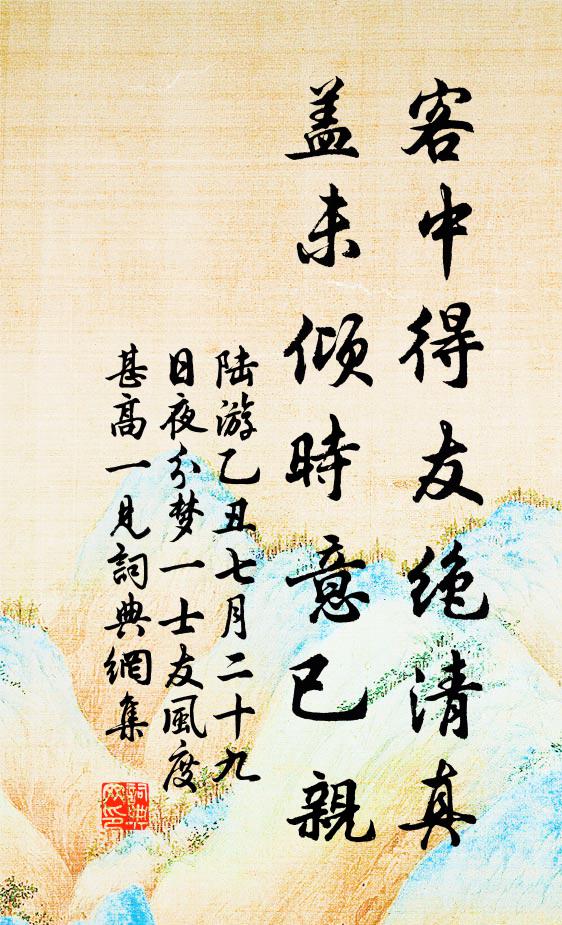 客中得友绝清真
盖未倾時意已親
陆游乙丑七月二十九
日夜分梦一士友風度
甚高一見詞典網集